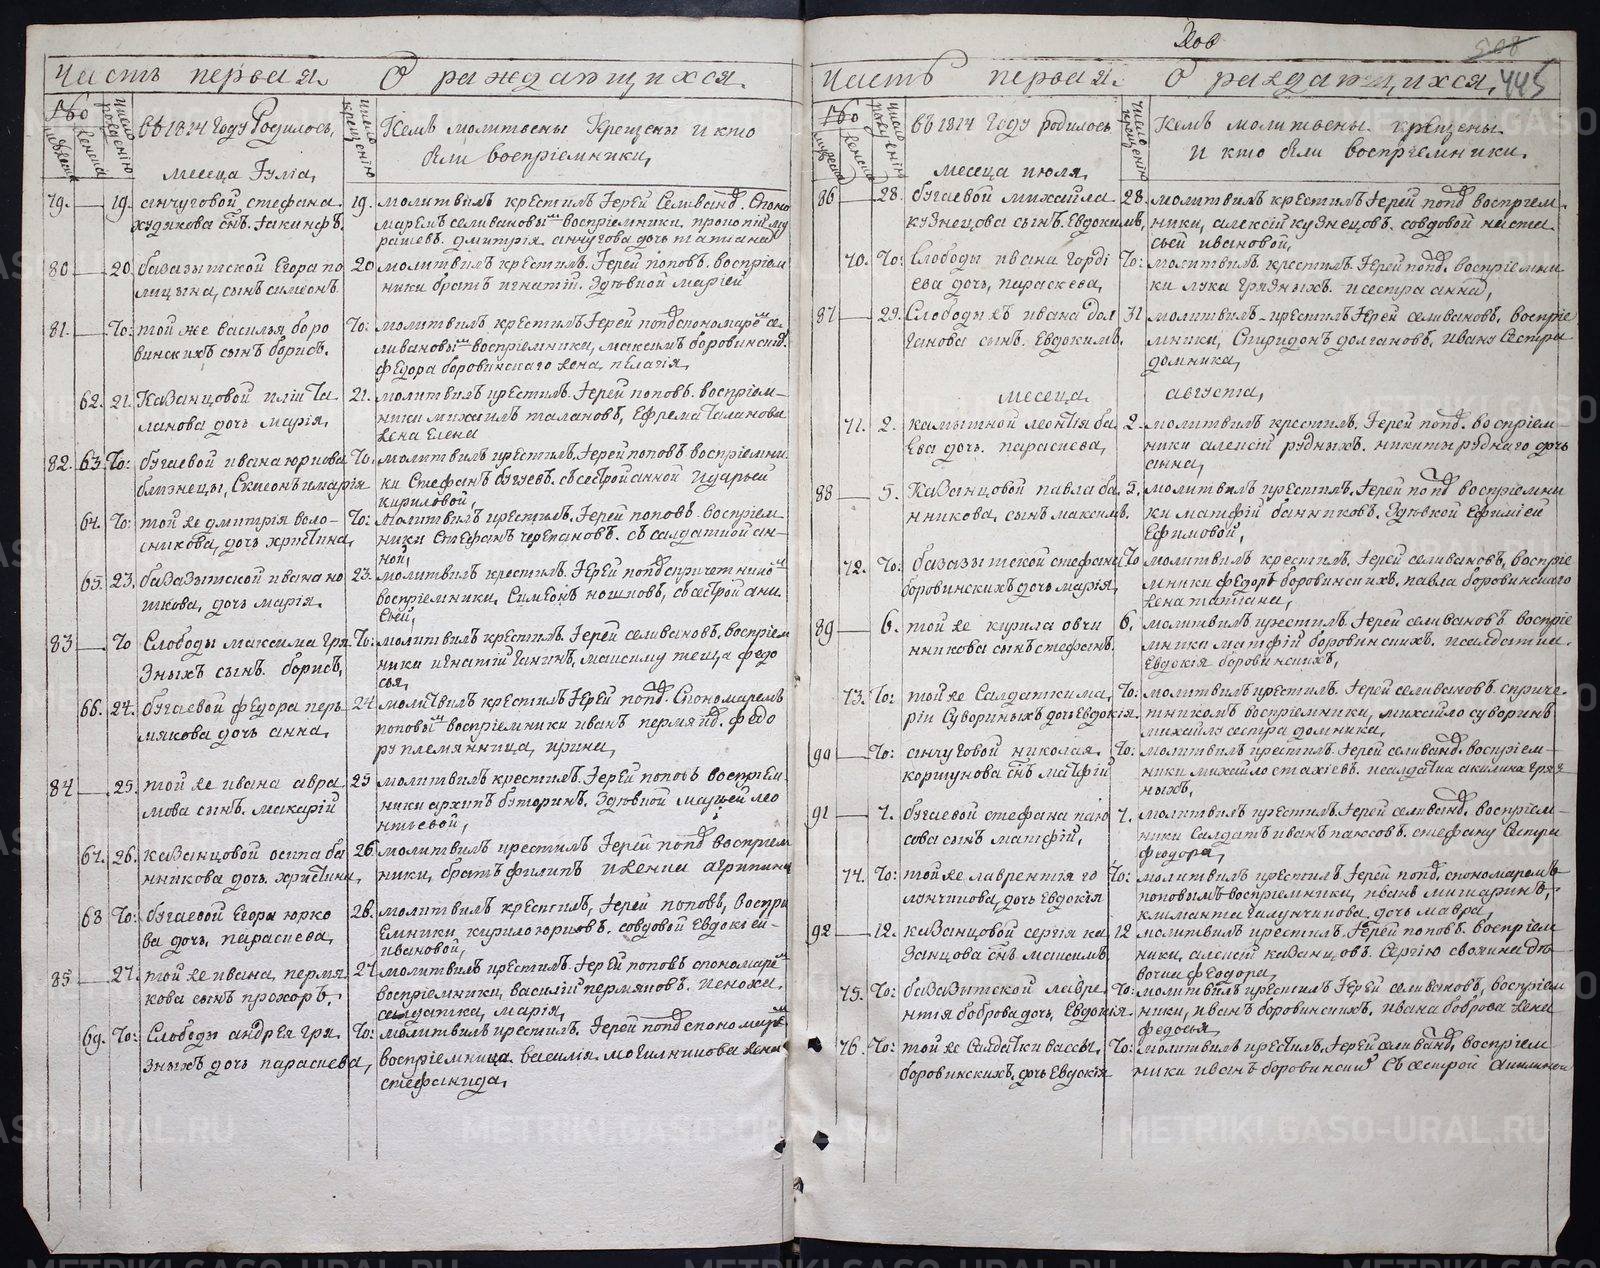 Часть первая. О раждающихся.
№
мужеска
женска
число рожденію
въ 1814 Году Родилось,
месеца Іуліа,
число крещенію
Кемъ молитвены Крещены и кто
были воспріемники,
79. 19. анчуговой, стефана
худякова снъ. Іакинфъ.
19. молитвилъ крестилъ Іерей Селиванов. Споно
маремъ селивановым воспріемники прокопій
дмитрія анчугова дочь татиана
80 20. базазытской Егора по
лицына, сынъ симеонъ.
20 молитвилъ крестилъ. Іерей поповъ. воспріем
ники братъ игнатій. Здѣвкой маріей
81. То: той же василья боро
винскихъ сынъ борисъ.
То: молитвилъ крестилъ Іерей попов спономарем се
ливановым воспріемники, максимъ боровинский.
федора боровинскаго жена, пелагія,
62. 21. Казанцовой иліи Та
ланова дочь марія,
21. молитвилъ крестилъ. Іерей поповъ. воспріем
ники михаилъ талановъ, Ефрема Таланова
жена Елена
82. 63. То: бугаевой ивана юркова
близнецы, Симеонъ и марія
То. молитвилъ крестилъ, Іерей поповъ воспріемни
ки Стефанъ бугуевъ. съ сестрой анной и дарьей
кириловой,
64. То: той же дмитрія воло
сникова, дочь христина,
То: молитвилъ крестилъ. Іерей поповъ. воспріем
ники Стефанъ черепановъ. съ салдаткой ан
ной,
65. 23. базазытской ивана но
шкова, дочь марія.
23. молитвилъ крестилъ. Іерей попов спричетником
воспріемники, Симеонъ ношковъ, съ сестрой ани
сьей,
83 То Слободы максима гря
зныхъ сынъ. борисъ,
То: молитвилъ крестилъ. Іерей селивановъ. воспріем
ники игнатій Ганинъ, максиму теща федо
сья,
66. 24. бугаевой федора перь
мякова дочь анна,
24 молитвилъ крестилъ Іерей попов. Спономаремъ
поповым воспріемники иванъ пермяков. федо
ру племянница, ирина,
84 25. той же ивана авра
мова сынъ. макарій
25 молитвилъ крестилъ. Іерей поповъ воспріем
ники архипъ буторинъ. Здѣвкой марьей лео
нтьевой,
67. 26. казанцовой осипа ба
нникова дочь. христина,
26. молитвилъ крестилъ. Іерей попов воспріем
ники, братъ филипъ и жена агрипина
68 То: бугаевой Егора юрко
ва дочь, параскева,
26. молитвилъ крестилъ, Іерей поповъ, воспри
емники, кирило юрковъ. совдовой Евдокіей
ивановой,
85 27. той же ивана, пермя
кова сынъ прохоръ.
27 молитвилъ крестилъ. Іерей поповъ спономарем
воспріемники, василій пермяковъ.
салдатка, марія,
69. То: Слободы андрея гря
зныхъ дочь параскева,
То: молитвилъ крестилъ. Іерей попов спономарем
воспріемница василія могильникова жена
стефанида,
508
445
Часть первая. О раждающихся,
№
мужеска
женска
число рожденію
въ 1814 Году родилось
месеца июля,
число крещенію
Кемъ молитвены. крещены
и кто были воспріемники.
86 28. бугаевой михайла
кузнецова сынъ Евдокимъ,
28. молитвилъ крестилъ Іерей попов воспріем
ники, алексій кузнецовъ. совдовой наста
сьей ивановой,
70. То: Слободы ивана горді
ева дочь, параскева,
То: молитвилъ. крестилъ. Іерей попов. воспріемни
ки лука Грязныхъ. и сестра анна,
87 29. Слободы жъ ивана дол
ганова сынъ. Евдокимъ.
31 молитвилъ крестилъ Іерей селивановъ, воспріе
мники, Спиридонъ долгановъ. ивану Сестра
домника,
месеца августа,
71. 2. камышной леонтія ба
ева дочь. параскева,
2. молитвилъ крестилъ, Іерей попов. воспріем
ники алексій рудныхъ. никиты руднаго дочь
анна,
88 5. Казанцовой павла ба
нникова, сынъ максимъ.
5. молитвилъ крестилъ. Іерей попов воспріемни
ки матфій банниковъ. Здѣвкой Ефиміей
Ефимовой,
72. То: базазытской стефана
боровинскихъ дочь марія,
То молитвилъ крестилъ. Іерей селивановъ, воспріе
мники федоръ боровинскихъ, павла боровинскаго
жена татіана,
89 6. той же кирила овчи
нникова сынъ стефанъ.
6. молитвилъ крестилъ Іерей селивановъ воспріе
мники матфій боровинскихъ. исалдатка.
Евдокія боровинскихъ,
73. То: той же Салдатки ма
ріи Суворинныхъ дочь Евдокія.
То: молитвилъ крестилъ. Іерей селивановъ. сприче
тникомъ воспріемники, михайло суворинъ
михайло сестра домника,
90 То: анчуговой николая
коршунова снъ матфій
То: молитвилъ крестилъ Іерей селиванов. воспріем
ники михайло стахіевъ. исалдатка акилина гряз
ныхъ,
91 7. бугаевой стефана паю
сова сынъ матфій,
7. молитвилъ крестилъ. Іерей селиванов. воспріем
ники Салдатъ иванъ паюсовъ. стефану Сестра
феодора,
74. То: той же лаврентія го
лунчикова, дочь Евдокія
То: молитвилъ крестилъ. Іерей попов, спономаремъ
поповымъ воспріемники, иванъ
климанта Галунчикова дочь мавра,
92 12. казанцовой сергія ка
занцова снъ максимъ
12 молитвилъ крестилъ. Іерей поповъ. воспріем
ники, алексій казанцовъ. Сергію своячина дѣ
вочка феодора,
75. То: базазытской лавре
нтія боброва дочь, Евдокія.
То: молитвилъ крестилъ Іерей селивановъ, воспріем
ники, иванъ боровинскихъ, ивана боброва жена
федосья
76. То: той же Салдатки вассы.
боровинскихъ, дочь Евдокія
То: молитвилъ крестилъ, Іерей селиванов, воспріем
ники иванъ боровинский съ сестрой Акилиной
METRIKI.GASO-URAL.RU